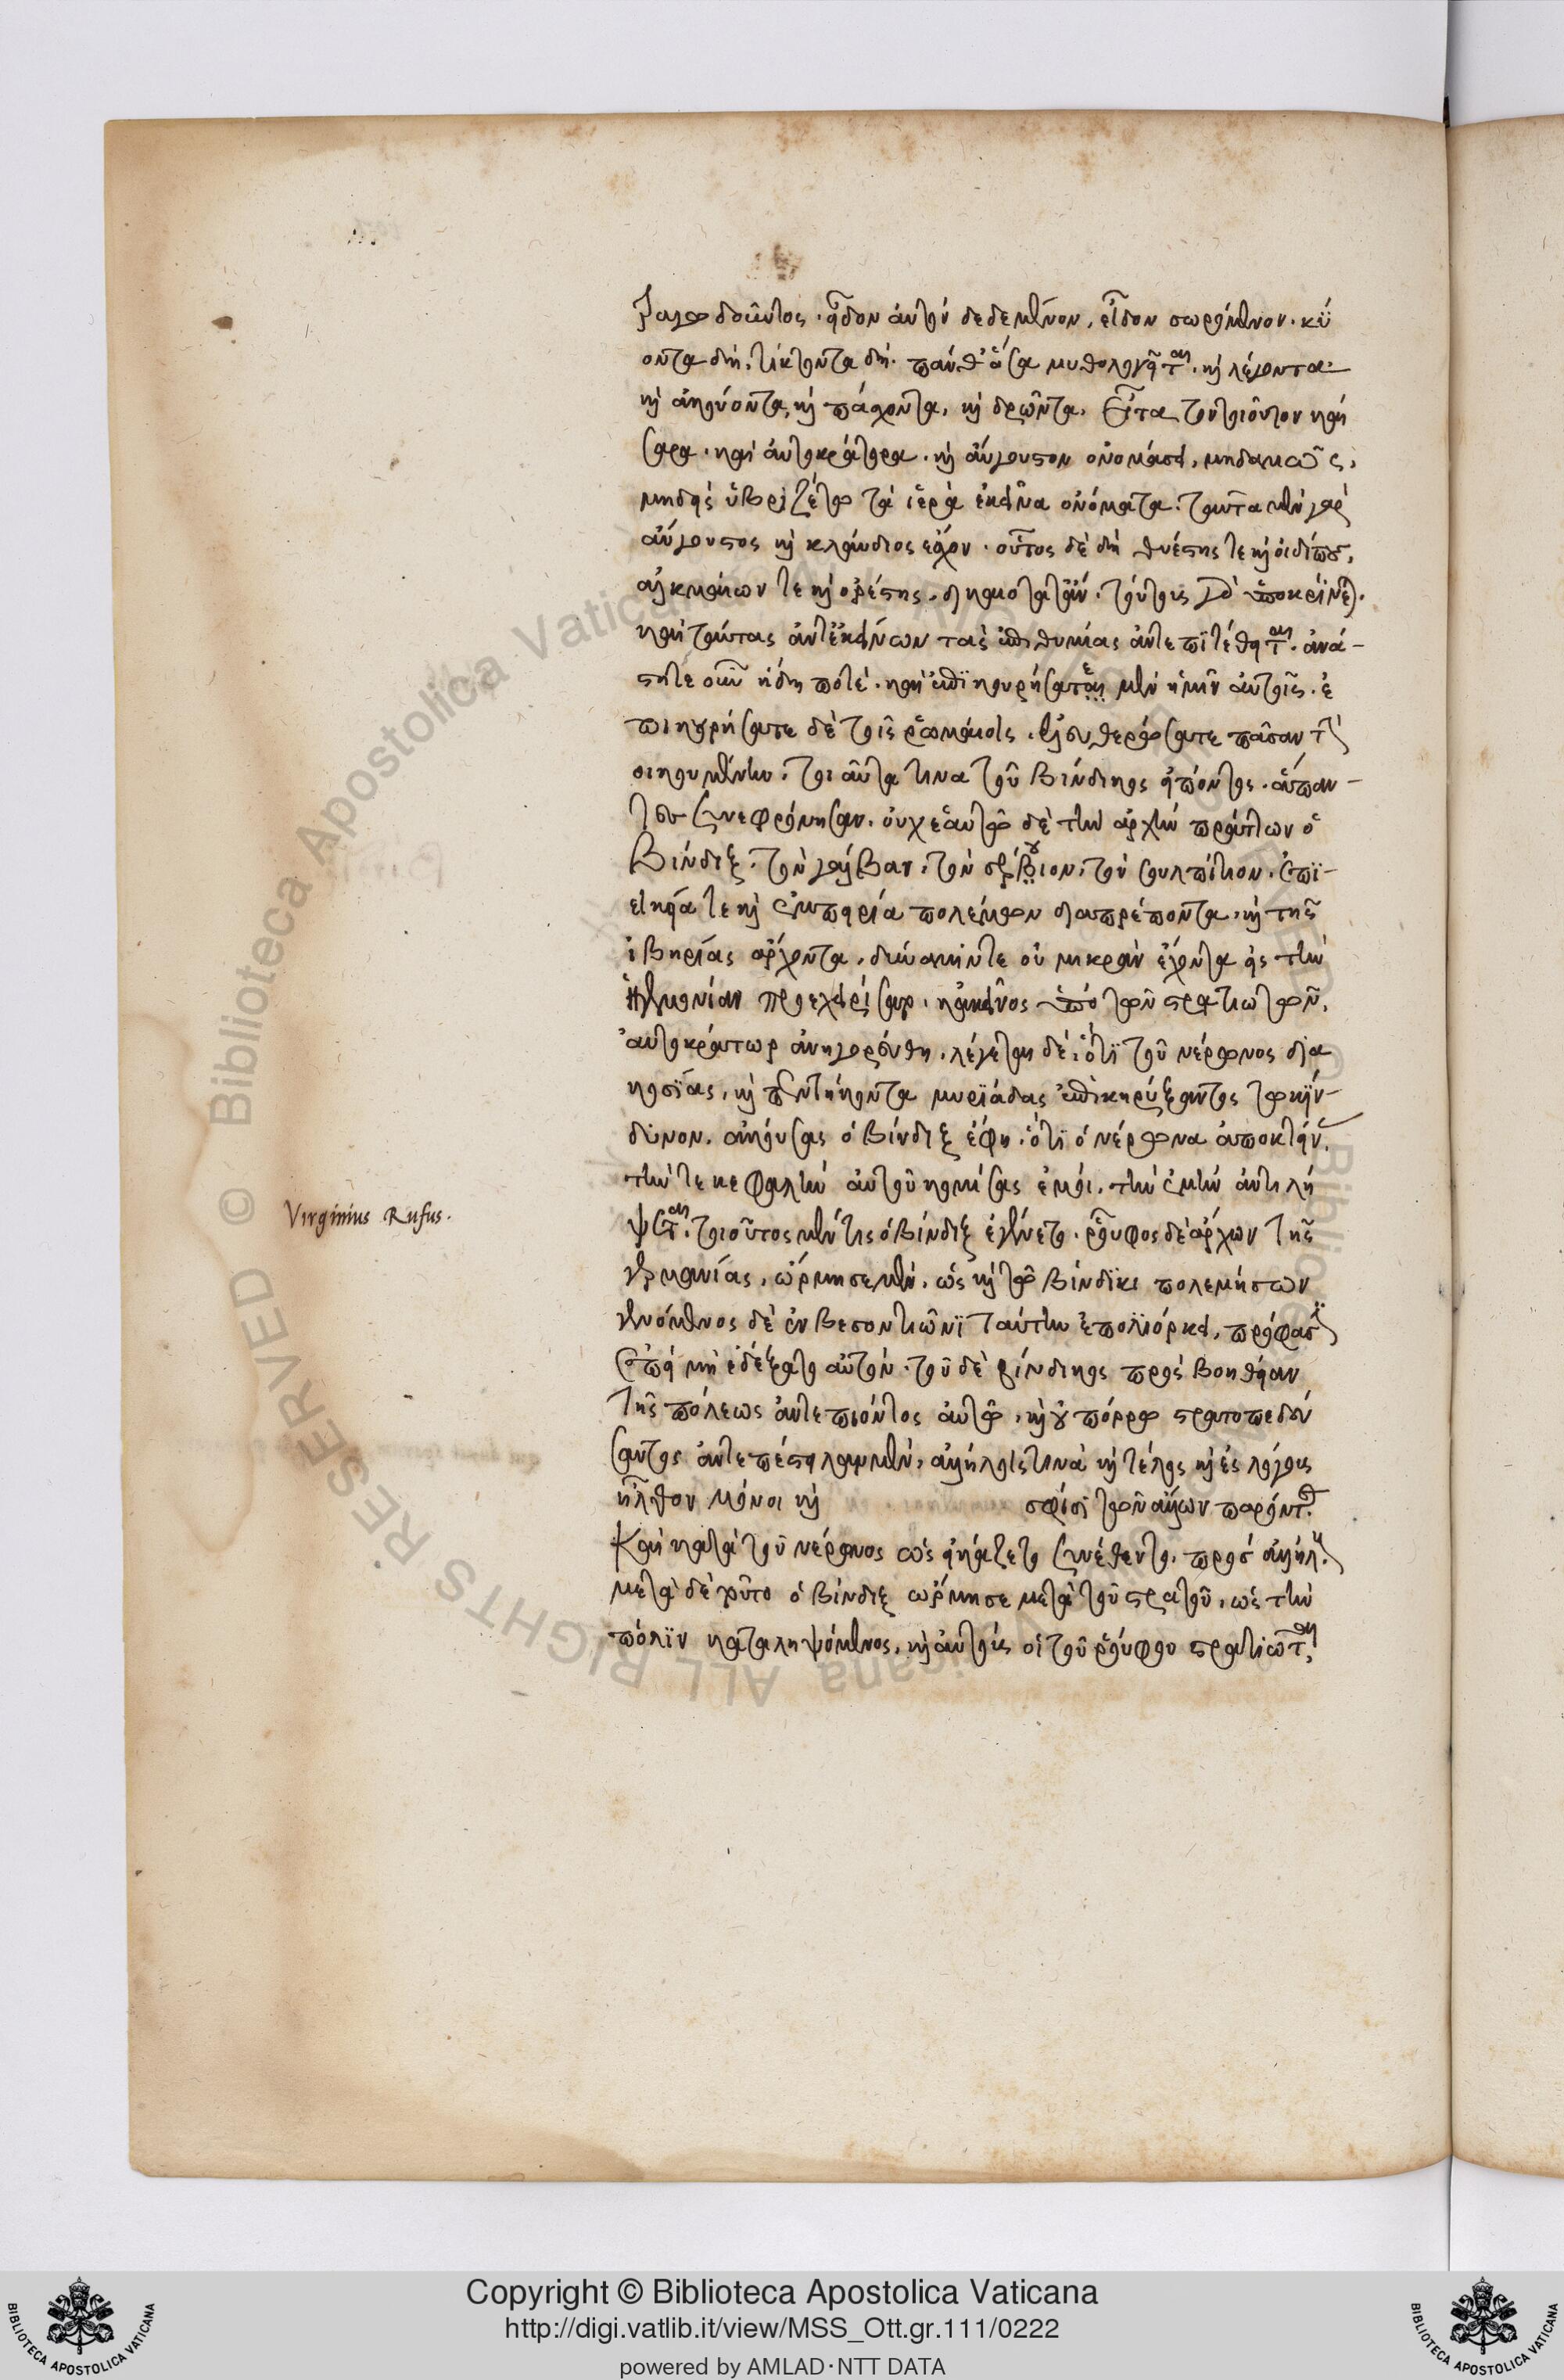 τραγωδοῦντος. εἶδον αὐτὸν δεδεμένον, εἶδον συρόμενον. κύ
οντα δὴ, τίκτοντα δή. πάνθ' ὅσα μυθολογεῖται. καὶ λέγοντα
καὶ ἀκούοντα, καὶ πάσχοντα, καὶ δρῶντα. Εἶτα τὸν τοιοῦτον καί
σαρα. καὶ αὐτοκράτορα. καὶ αὔγουστον ὀνομάσει, μηδαμῶς,
μηδεὶς ὑβριζέτω τὰ ἱερὰ ἐκεῖνα ὀνόματα. ταῦτα μὲν γὰρ
αὔγουστος καὶ κλαύδιος ἔσχον. οὗτος δὲ δὴ θυέστης τε καὶ οἰδίπους,
ἀλκμαίων τε καὶ ὀρέστης. τούτους γὰρ ὑποκρίνεται.
καὶ ταύτας ἀντ' ἐκείνων τὰς ἐπιθυμίας ἀντεπιτέθειται. ἀνά-
στητε οὖν ἤδη ποτέ. καὶ ἐπικουρήσατε μὲν ἡμῖν αὐτοῖς. ἐ
πικουρήσατε δὲ τοῖς ῥωμαίοις. ἐλευθερώσατε πᾶσαν τὴν
οἰκουμένην. τοιαῦτά τινα τοῦ βίνδικος εἰπόντος. ἅπαν-
τες συνεφρόνησαν. οὐχ ἑαυτῷ δὲ τὴν ἀρχὴν πράττων ὁ
Βίνδιξ. τὸν γάλβαν. τὸν σερούιον, τὸν σουλπίτιον. ἐπι-
εικείᾳ τε καὶ ἐμπειρίᾳ πολέμων διαπρέποντα. καὶ τῆς
ἰβηρίας ἄρχοντα, δύναμίν τε οὐ μικρὰν ἔχοντα εἰς τὴν
ἡγεμονίαν προεχειρίσατο. κἀκεῖνος ὑπὸ τῶν στρατιωτῶν,
αὐτοκράτωρ ἀνηγορεύθη. λέγεται δέ. ὅτι τοῦ νέρωνος δια
κοσίας, καὶ πεντήκοντα μυριάδας ἐπικηρύξαντος τῷ βίν-
δικι. ἀκούσας ὁ βίνδιξ ἔφη. ὅτι ὁ νέρωνα ἀποκτείνας
τήν τε κεφαλὴν αὐτοῦ κομίσας ἐμοί. τὴν ἐμὴν ἀντιλή
ψεται. τοιοῦτος μέν τις ὁ βίνδιξ ἐγένετο. ῥοῦφος δὲ ἄρχων τῆς
γερμανίας, ὥρμησε μὲν. ὡς καὶ τῷ βίνδικι πολεμήσων
γενόμενος δὲ ἐν βεσοντιῶνι ταύτην ἐπολιόρκει, πρόφασιν
ἐπεὶ μὴ ἐδέξατο αὐτόν. τοῦ δὲ βίνδικος πρὸς βοήθειαν
τῆς πόλεως ἀντεπιόντος αὐτῷ, καὶ οὐ πόρρω στρατοπεδεύ
σαντος ἀντεπέστειλαν μὲν, ἀλλήλοις τινὰ καὶ τέλος καὶ ἐς λόγους
ἦλθον μόνοι καὶ σφίσι τῶν ἄλλων παρόντος
Καὶ κατὰ τοῦ νέρωνος ὡς εἰκάζετο συνέθεντο, πρὸς ἀλλήλους
μετὰ δὲ τοῦτο ὁ βίνδιξ ὥρμησε μετὰ τοῦ στρατοῦ, ὡς τὴν
πόλιν καταληψόμενος, καὶ αὐτοῖς οἱ τοῦ ῥούφου στρατιῶται,
Virginius Rufus.
Copyright © Biblioteca Apostolica Vaticana
http://digi.vatlib.it/view/MSS_Ott.gr.111/0222
powered by AMLAD·NTT DATA
BIBLIOTECA APOSTOLICA VATICANA
BIBLIOTECA APOSTOLICA VATICANA
© Biblioteca Apostolica Vaticana ALL RIGHTS RESERVED